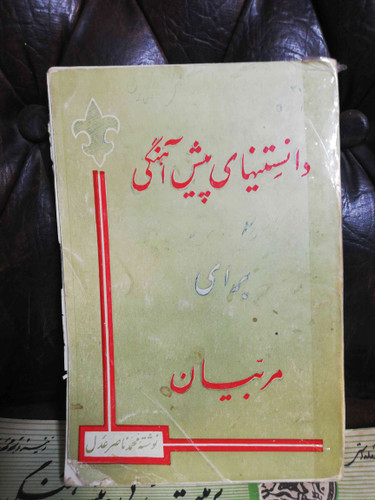 دانستنیهای پیش آهنگی
برای
مربّیان
نوشته محمد ناصر عدل